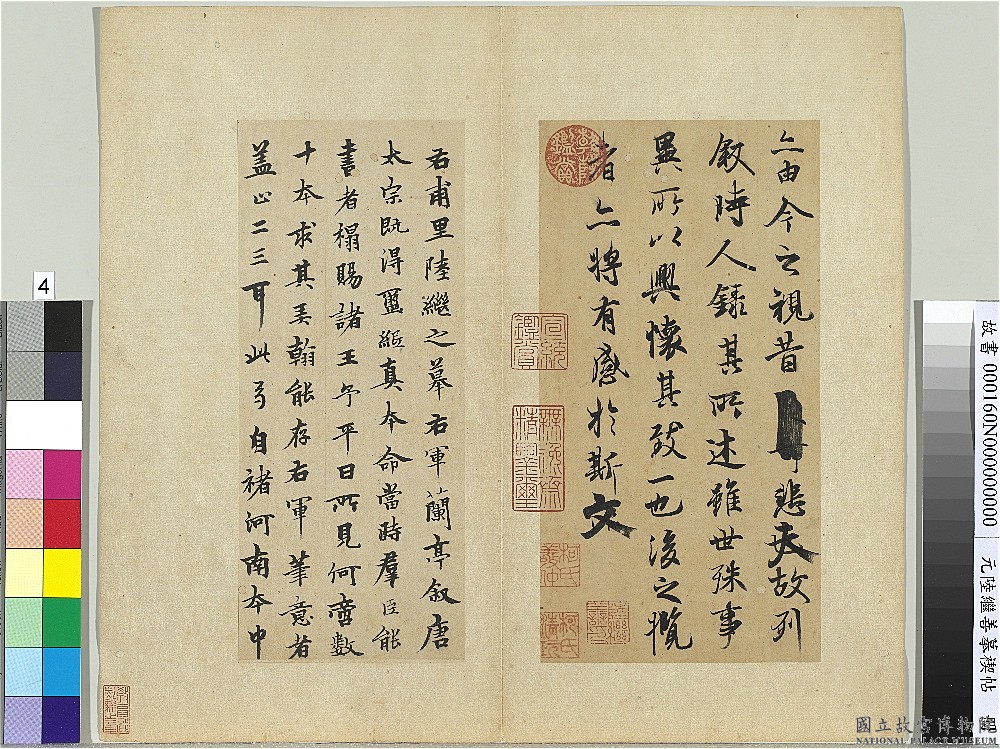 亦由今之視昔
悲夫故列
叙時人錄其所述雖世殊事
異所以興懷其致一也後之攬
者亦將有感於斯文
右甫里陸繼之摹右軍蘭亭叙唐
太宗既得璽縱真本命當時羣臣能
書者搨賜諸王予平日所見何啻數
十本求其弄翰能存右軍筆意者
蓋止二三耳此乃自褚河南本中
宣統鑑賞
無逸齋精鑑璽
4
故書 000160N000000000
元陸繼善摹禊帖
國立故宮博物院
NATIONAL PALACE MUSEUM